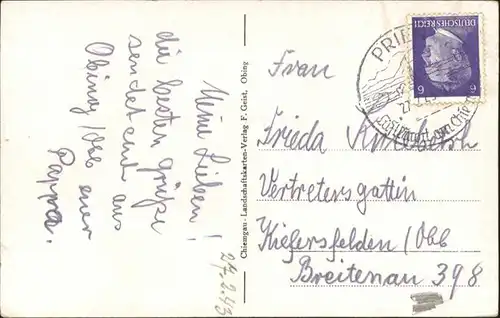 Meine Lieben!
die besten Grüße
sendet euch aus
Obing/Obb euer
Pappa.
27.2.43
Chiemgau-Landschaftskarten-Verlag F. Geist, Obing
PRIE
DEUTSCHES REICH
6 6
Frau
Frieda
Vertretersgattin
Kiefersfelden/Obb
Breitenau 398